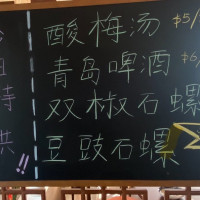 酸梅汤 $5/
青岛啤酒 $6/
双椒石螺
豆豉石螺
特
供
!!